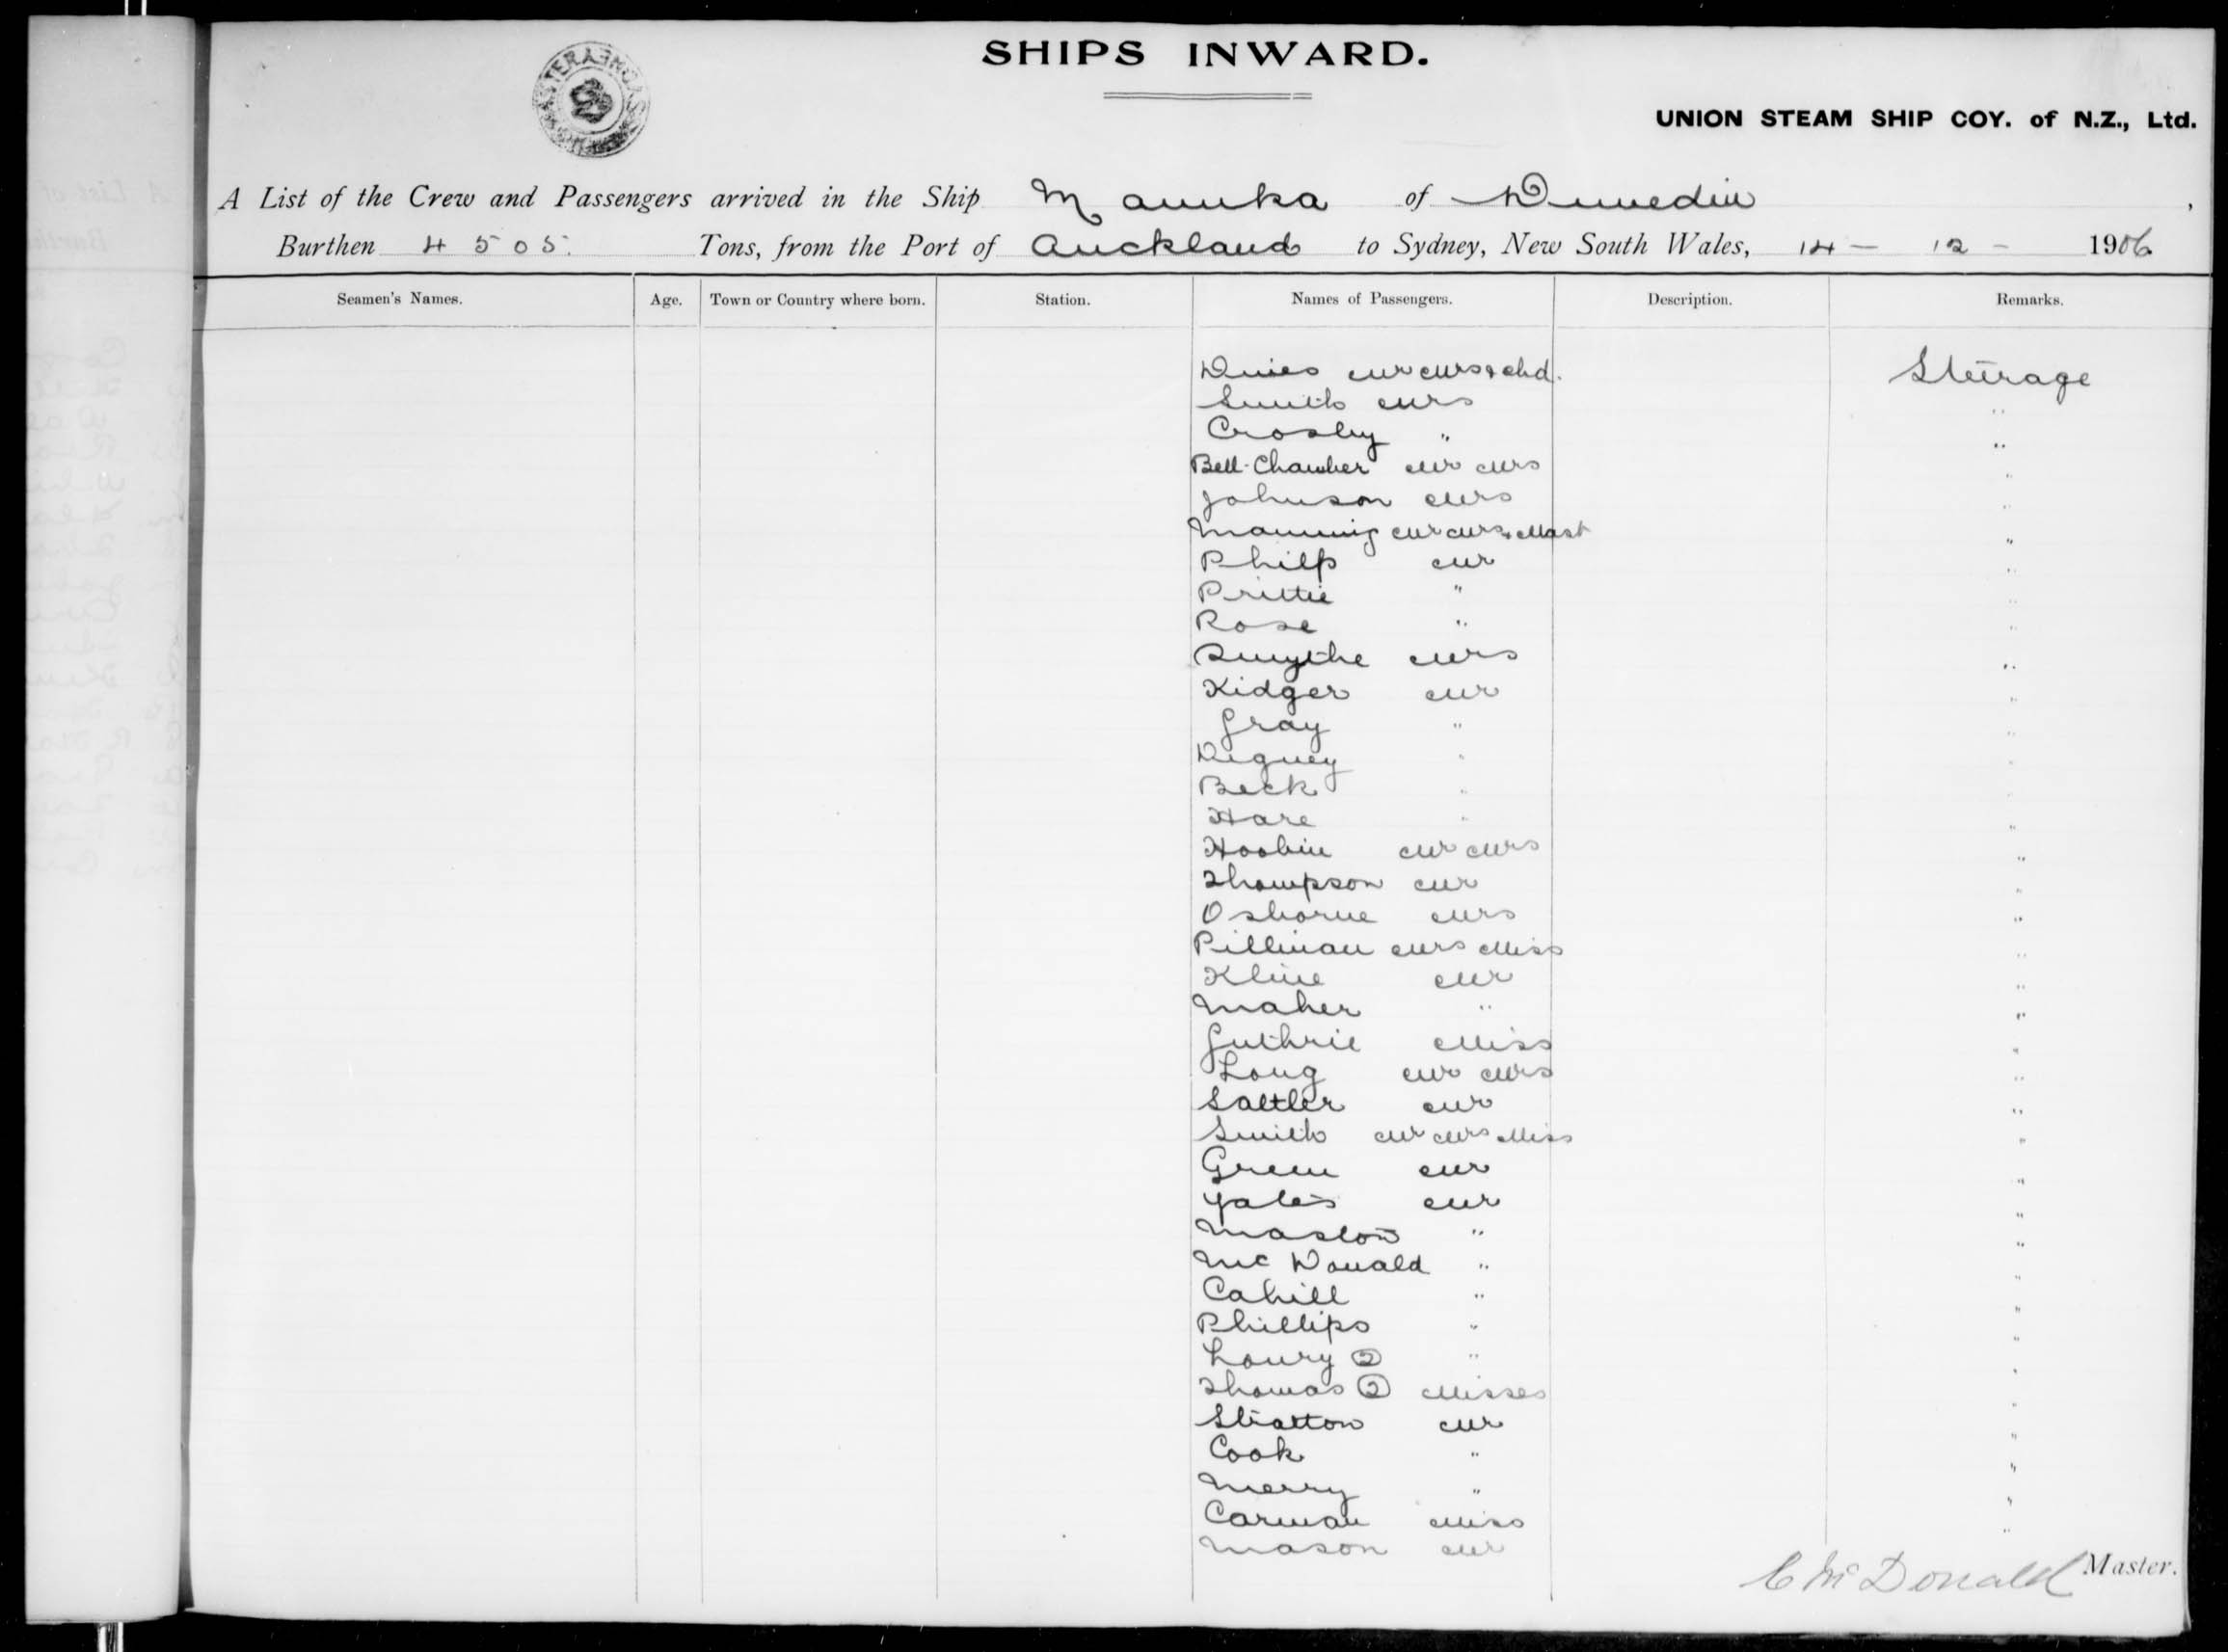 SHIPS INWARD.
UNION STEAM SHIP COY. of N.Z., Ltd.
A List of the Crew and Passengers arrived in the Ship Manuka of Dunedin,
Burthen 4505. Tons, from the Port of Auckland to Sydney, New South Wales, 14 - 12 - 1906
Seamen's Names. Age. Town or Country where born. Station. Names of Passengers. Description. Remarks.
Mr Mrs & chd. Steerage
Smith Mrs "
Crosby " "
Bell-Chamber Mr Mrs "
Johnson Mrs "
Manning Mr Mrs & Mast "
Philp Mr "
Prittie " "
Rose " "
Smythe Mrs "
Kidger Mr "
Gray " "
Degney " "
Beck " "
Hare " "
Hoobin Mr Mrs "
Thompson Mr "
Osborne Mrs "
Pillman Mrs Miss "
Kline Mr "
Maher " "
Guthrie Miss "
Long Mr Mrs "
Sattler Mr "
Smith Mr Mrs Miss "
Green Mr "
Yates Mr "
Maslow " "
McDonald " "
Cahill " "
Phillips " "
Loury 2 " "
Thomas 2 Misses "
Stratton Mr "
Cook " "
Merry " "
Carman Miss "
Mason Mr
C McDonald Master.